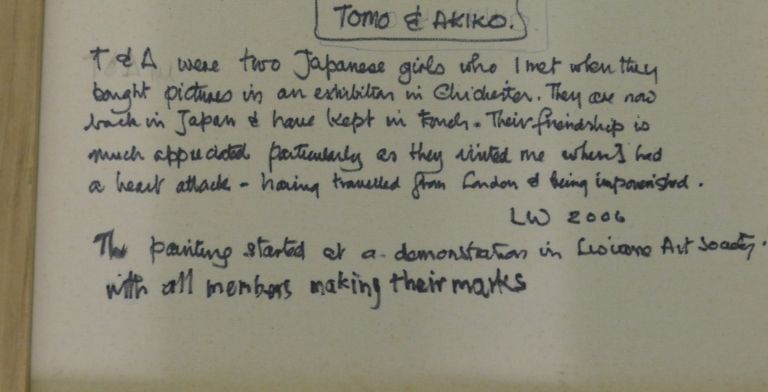 TOMO & AKIKO.
T & A were two Japanese girls who I met when they
bought pictures in an exhibition in Chichester. They are now
back in Japan & have kept in touch. Their friendship is
much appreciated particularly as they visited me when I had
a heart attack - having travelled from London & being impoverished.
LW 2006
The painting started at a demonstration in Art Society.
with all members making their marks